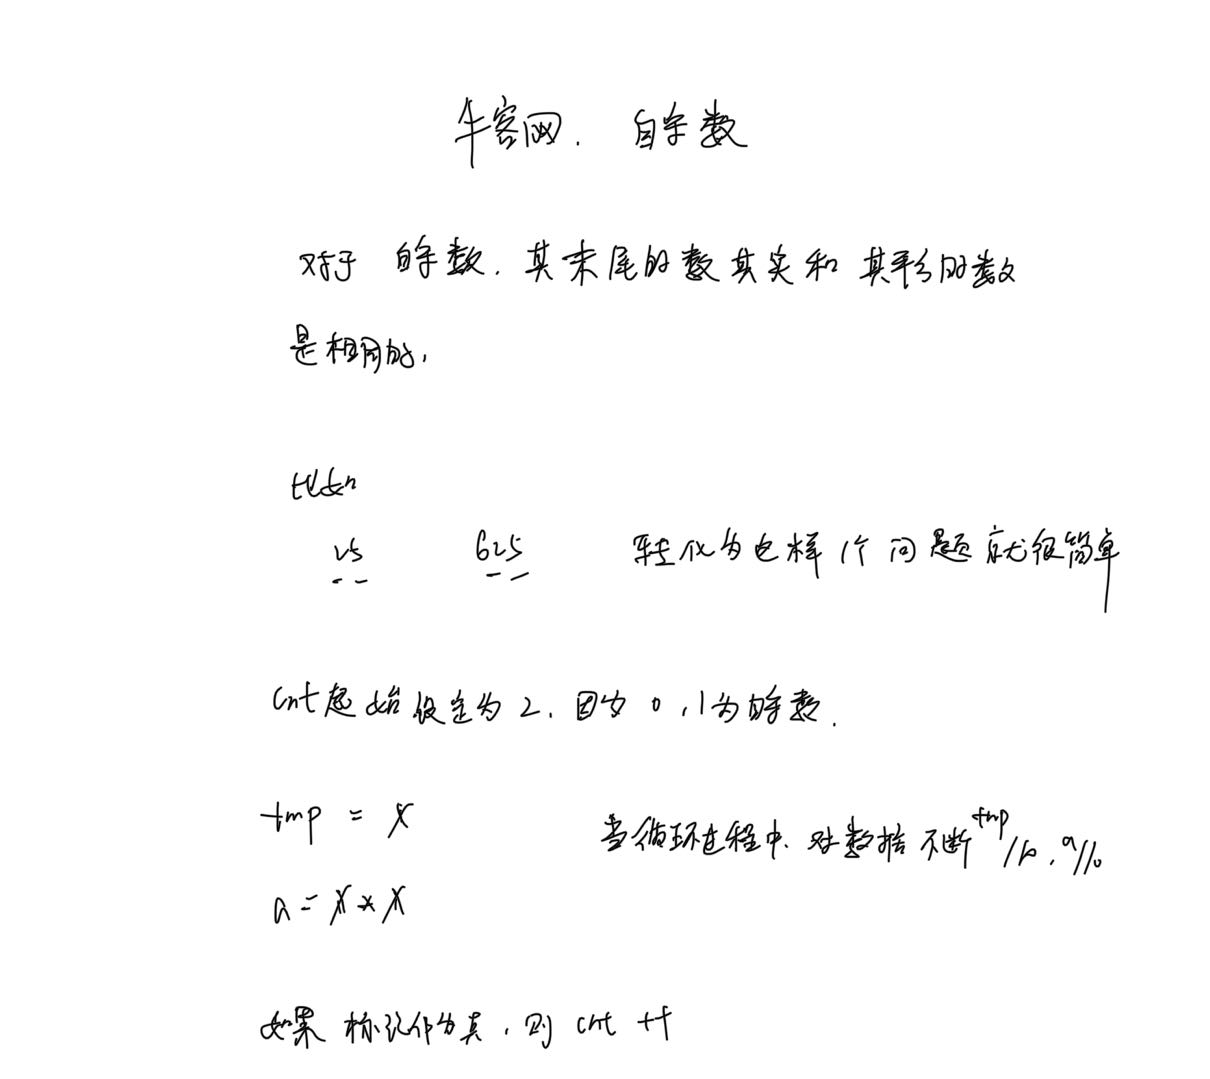 牛客网. 自守数
对于 自守数. 其末尾的数其实和 其平方的数
是相同的,
比如
25 625 转化为这样1个问题就很简单
cnt起始设定为2. 因为 0 , 1为自守数.
tmp = x
当循环过程中. 对数据不断 tmp/10 , a/10
a = x * x
如果 标记作为真, 则 cnt ++